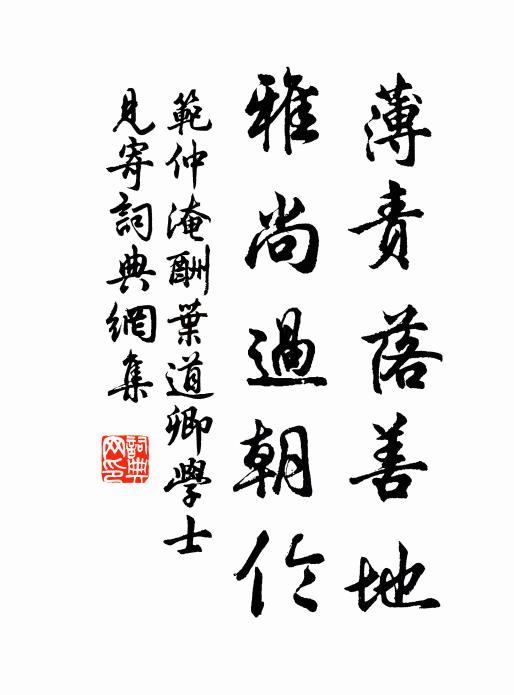 薄責落善地
雅尚過朝伶
範仲淹酬葉道卿學士
見寄詞典網集
詞典网印